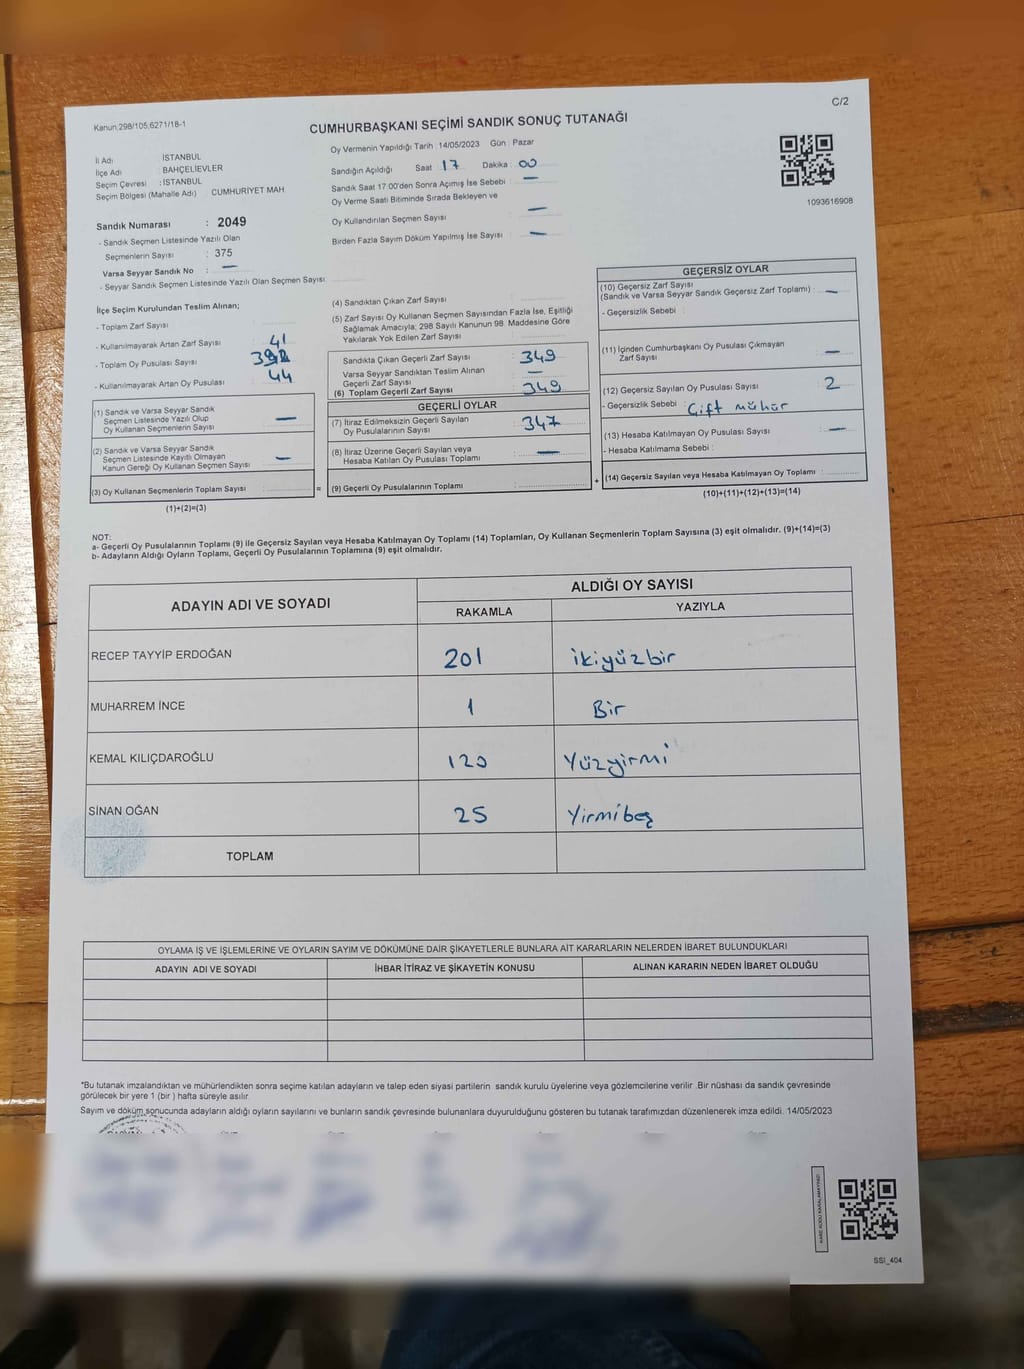 Kanun,298/105;6271/18-1
C/2
CUMHURBAŞKANI SEÇİMİ SANDIK SONUÇ TUTANAĞI
İl Adı : İSTANBUL
İlçe Adı : BAHÇELİEVLER
Seçim Çevresi : İSTANBUL
Seçim Bölgesi (Mahalle Adı) : CUMHURİYET MAH.
Sandık Numarası : 2049
- Sandık Seçmen Listesinde Yazılı Olan
Seçmenlerin Sayısı : 375
Varsa Seyyar Sandık No : —
- Seyyar Sandık Seçmen Listesinde Yazılı Olan Seçmen Sayısı
Oy Vermenin Yapıldığı Tarih : 14/05/2023 Gün : Pazar
Sandığın Açıldığı Saat : 17 Dakika : 00
Sandık Saat 17:00'den Sonra Açımış İse Sebebi : —
Oy Verme Saati Bitiminde Sırada Bekleyen ve
Oy Kullandırılan Seçmen Sayısı : —
Birden Fazla Sayım Döküm Yapılmış İse Sayısı : —
1093616908
İlçe Seçim Kurulundan Teslim Alınan;
- Toplam Zarf Sayısı :
- Kullanılmayarak Artan Zarf Sayısı : 41
- Toplam Oy Pusulası Sayısı :
- Kullanılmayarak Artan Oy Pusulası : 44
(1) Sandık ve Varsa Seyyar Sandık
Seçmen Listesinde Yazılı Olup
Oy Kullanan Seçmenlerin Sayısı : —
(2) Sandık ve Varsa Seyyar Sandık
Seçmen Listesinde Kayıtlı Olmayan
Kanun Gereği Oy Kullanan Seçmen Sayısı : —
(3) Oy Kullanan Seçmenlerin Toplam Sayısı :
(1)+(2)=(3)
(4) Sandıktan Çıkan Zarf Sayısı :
(5) Zarf Sayısı Oy Kullanan Seçmen Sayısından Fazla İse, Eşitliği
Sağlamak Amacıyla; 298 Sayılı Kanunun 98. Maddesine Göre
Yakılarak Yok Edilen Zarf Sayısı :
Sandıkta Çıkan Geçerli Zarf Sayısı : 349
Varsa Seyyar Sandıktan Teslim Alınan
Geçerli Zarf Sayısı : —
(6) Toplam Geçerli Zarf Sayısı : 349
GEÇERLİ OYLAR
(7) İtiraz Edilmeksizin Geçerli Sayılan
Oy Pusulalarının Sayısı : 347
(8) İtiraz Üzerine Geçerli Sayılan veya
Hesaba Katılan Oy Pusulası Toplamı : —
= (9) Geçerli Oy Pusulalarının Toplamı :
GEÇERSİZ OYLAR
(10) Geçersiz Zarf Sayısı
(Sandık ve Varsa Seyyar Sandık Geçersiz Zarf Toplamı) : —
- Geçersizlik Sebebi :
(11) İçinden Cumhurbaşkanı Oy Pusulası Çıkmayan
Zarf Sayısı : —
(12) Geçersiz Sayılan Oy Pusulası Sayısı : 2
- Geçersizlik Sebebi : Çift mühür
(13) Hesaba Katılmayan Oy Pusulası Sayısı : —
- Hesaba Katılmama Sebebi :
+ (14) Geçersiz Sayılan veya Hesaba Katılmayan Oy Toplamı :
(10)+(11)+(12)+(13)=(14)
NOT:
a- Geçerli Oy Pusulalarının Toplamı (9) ile Geçersiz Sayılan veya Hesaba Katılmayan Oy Toplamı (14) Toplamları, Oy Kullanan Seçmenlerin Toplam Sayısına (3) eşit olmalıdır. (9)+(14)=(3)
b- Adayların Aldığı Oyların Toplamı, Geçerli Oy Pusulalarının Toplamına (9) eşit olmalıdır.
ADAYIN ADI VE SOYADI
ALDIĞI OY SAYISI
RAKAMLA YAZIYLA
RECEP TAYYİP ERDOĞAN 201 ikiyüzbir
MUHARREM İNCE 1 Bir
KEMAL KILIÇDAROĞLU 120 Yüzyirmi
SİNAN OĞAN 25 Yirmibeş
TOPLAM
OYLAMA İŞ VE İŞLEMLERİNE VE OYLARIN SAYIM VE DÖKÜMÜNE DAİR ŞİKAYETLERLE BUNLARA AİT KARARLARIN NELERDEN İBARET BULUNDUKLARI
ADAYIN ADI VE SOYADI İHBAR İTİRAZ VE ŞİKAYETİN KONUSU ALINAN KARARIN NEDEN İBARET OLDUĞU
*Bu tutanak imzalandıktan ve mühürlendikten sonra seçime katılan adayların ve talep eden siyasi partilerin sandık kurulu üyelerine veya gözlemcilerine verilir .Bir nüshası da sandık çevresinde
görülecek bir yere 1 (bir ) hafta süreyle asılır.
Sayım ve döküm sonucunda adayların aldığı oyların sayılarını ve bunların sandık çevresinde bulunanlara duyurulduğunu gösteren bu tutanak tarafımızdan düzenlenerek imza edildi. 14/05/2023
KARE KODU KARALAMAYINIZ!
SSI_404